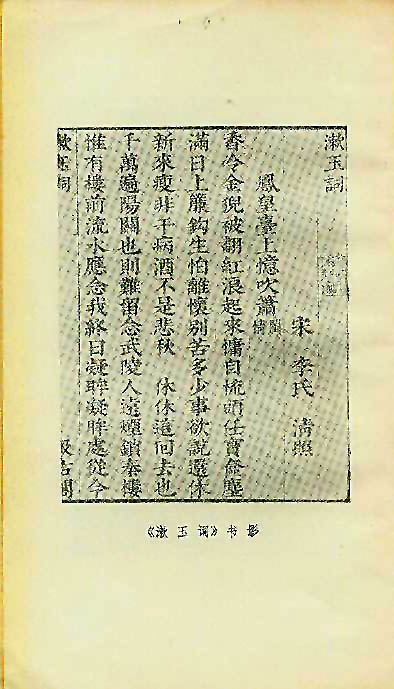 漱玉詞
宋 李氏 清照
鳳皇臺上憶吹簫 閨情
香冷金猊被翻紅浪起來慵自梳頭任寶奩塵
滿日上簾鈎生怕離懷別苦多少事欲說還休
新來瘦非干病酒不是悲秋 休休這回去也
千萬遍陽關也則難留念武陵人遠煙鎖秦樓
惟有樓前流水應念我終日凝眸凝眸處從今
漱玉詞 汲古閣
《漱玉词》书影